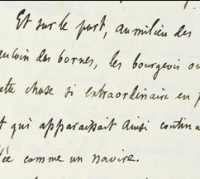 Et sur le port, au milieu des
au coin des bornes, les bourgeois ou
cette chose si extraordinaire en p
et qui apparaissait ainsi continu
lée comme un navire.